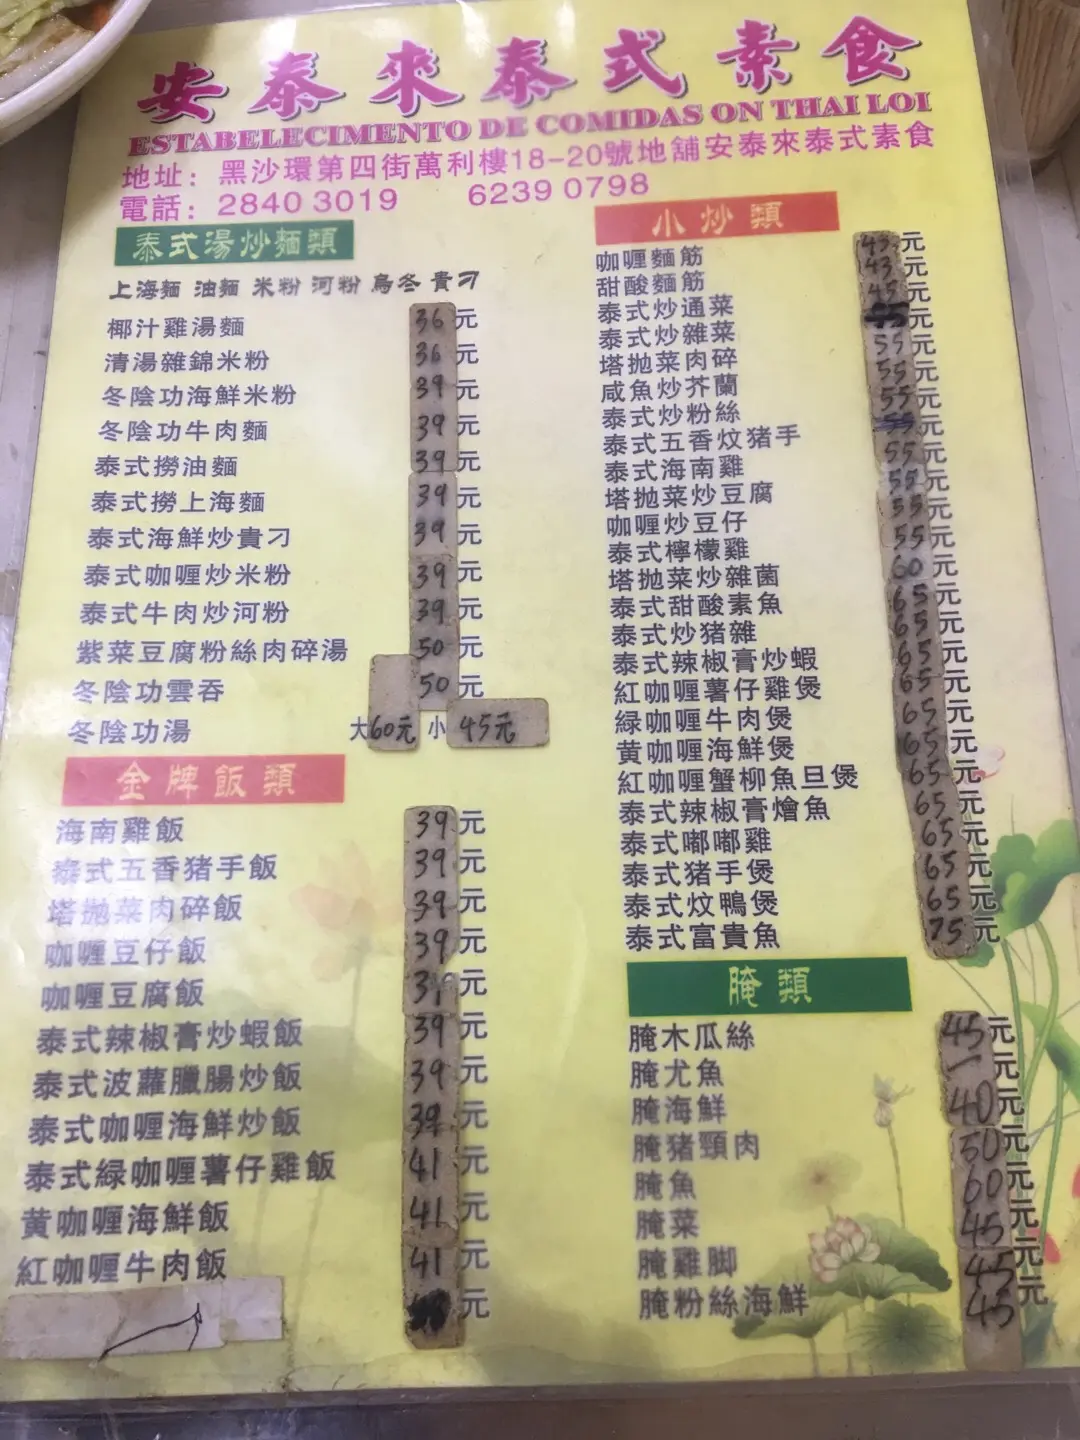 安泰來泰式素食
ESTABELECIMENTO DE COMIDAS ON THAI LOI
地址：黑沙環第四街萬利樓18-20號地舖安泰來泰式素食
電話：2840 3019 6239 0798
泰式湯炒麵類
上海麵 油麵 米粉 河粉 烏冬 貴刁
椰汁雞湯麵 36元
清湯雜錦米粉 36元
冬陰功海鮮米粉 39元
冬陰功牛肉麵 39元
泰式撈油麵 39元
泰式撈上海麵 39元
泰式海鮮炒貴刁 39元
泰式咖喱炒米粉 39元
泰式牛肉炒河粉 39元
紫菜豆腐粉絲肉碎湯 50元
冬陰功雲吞 50元
冬陰功湯 大60元 小45元
金牌飯類
海南雞飯 39元
泰式五香猪手飯 39元
塔抛菜肉碎飯 39元
咖喱豆仔飯 39元
咖喱豆腐飯 39元
泰式辣椒膏炒蝦飯 39元
泰式波蘿臘腸炒飯 39元
泰式咖喱海鮮炒飯 39元
泰式緑咖喱薯仔雞飯 41元
黄咖喱海鮮飯 41元
紅咖喱牛肉飯 41元
元
小炒類
咖喱麵筋 43元
甜酸麵筋 43元
泰式炒通菜 45元
泰式炒雜菜 元
塔抛菜肉碎 55元
咸魚炒芥蘭 55元
泰式炒粉絲 55元
泰式五香炆猪手 55元
泰式海南雞 55元
塔抛菜炒豆腐 55元
咖喱炒豆仔 55元
泰式檸檬雞 55元
塔抛菜炒雜菌 60元
泰式甜酸素魚 65元
泰式炒猪雜 65元
泰式辣椒膏炒蝦 65元
紅咖喱薯仔雞煲 65元
緑咖喱牛肉煲 65元
黄咖喱海鮮煲 65元
紅咖喱蟹柳魚旦煲 65元
泰式辣椒膏燴魚 65元
泰式嘟嘟雞 65元
泰式猪手煲 65元
泰式炆鴨煲 65元
泰式富貴魚 75元
腌類
腌木瓜絲 45元
腌尤魚 一元
腌海鮮 40元
腌猪頸肉 50元
腌魚 60元
腌菜 45元
腌雞脚 45元
腌粉絲海鮮 45元